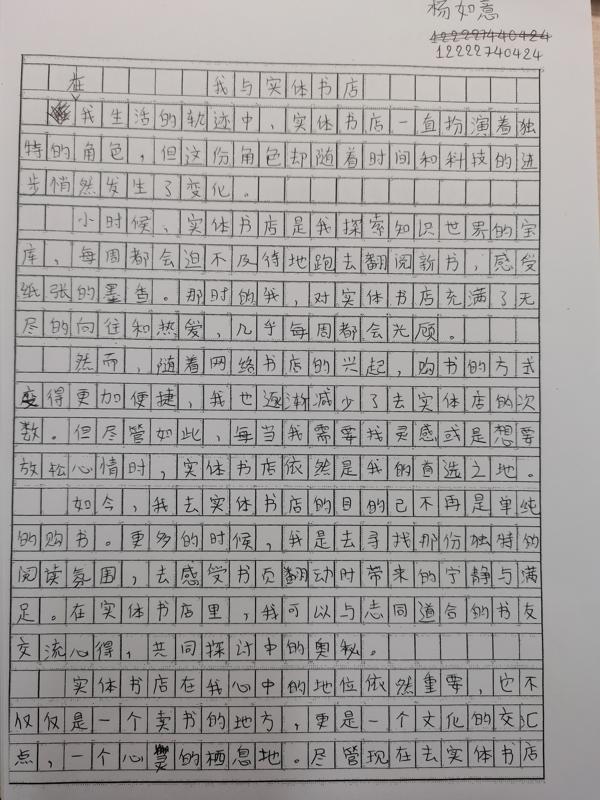 杨如意
122227440424
12222740424
我与实体书店
在
我生活的轨迹中，实体书店一直扮演着独
特的角色，但这份角色却随着时间和科技的进
步悄然发生了变化。
小时候，实体书店是我探索知识世界的宝
库，每周都会迫不及待地跑去翻阅新书，感受
纸张的墨香。那时的我，对实体书店充满了无
尽的向往和热爱，几乎每周都会光顾。
然而，随着网络书店的兴起，购书的方式
变得更加便捷，我也逐渐减少了去实体店的次
数。但尽管如此，每当我需要找灵感或是想要
放松心情时，实体书店依然是我的首选之地。
如今，我去实体书店的目的已不再是单纯
的购书。更多的时候，我是去寻找那份独特的
阅读氛围，去感受书页翻动时带来的宁静与满
足。在实体书店里，我可以与志同道合的书友
交流心得，共同探讨中的奥秘。
实体书店在我心中的地位依然重要，它不
仅仅是一个卖书的地方，更是一个文化的交汇
点，一个心灵的栖息地。尽管现在去实体书店